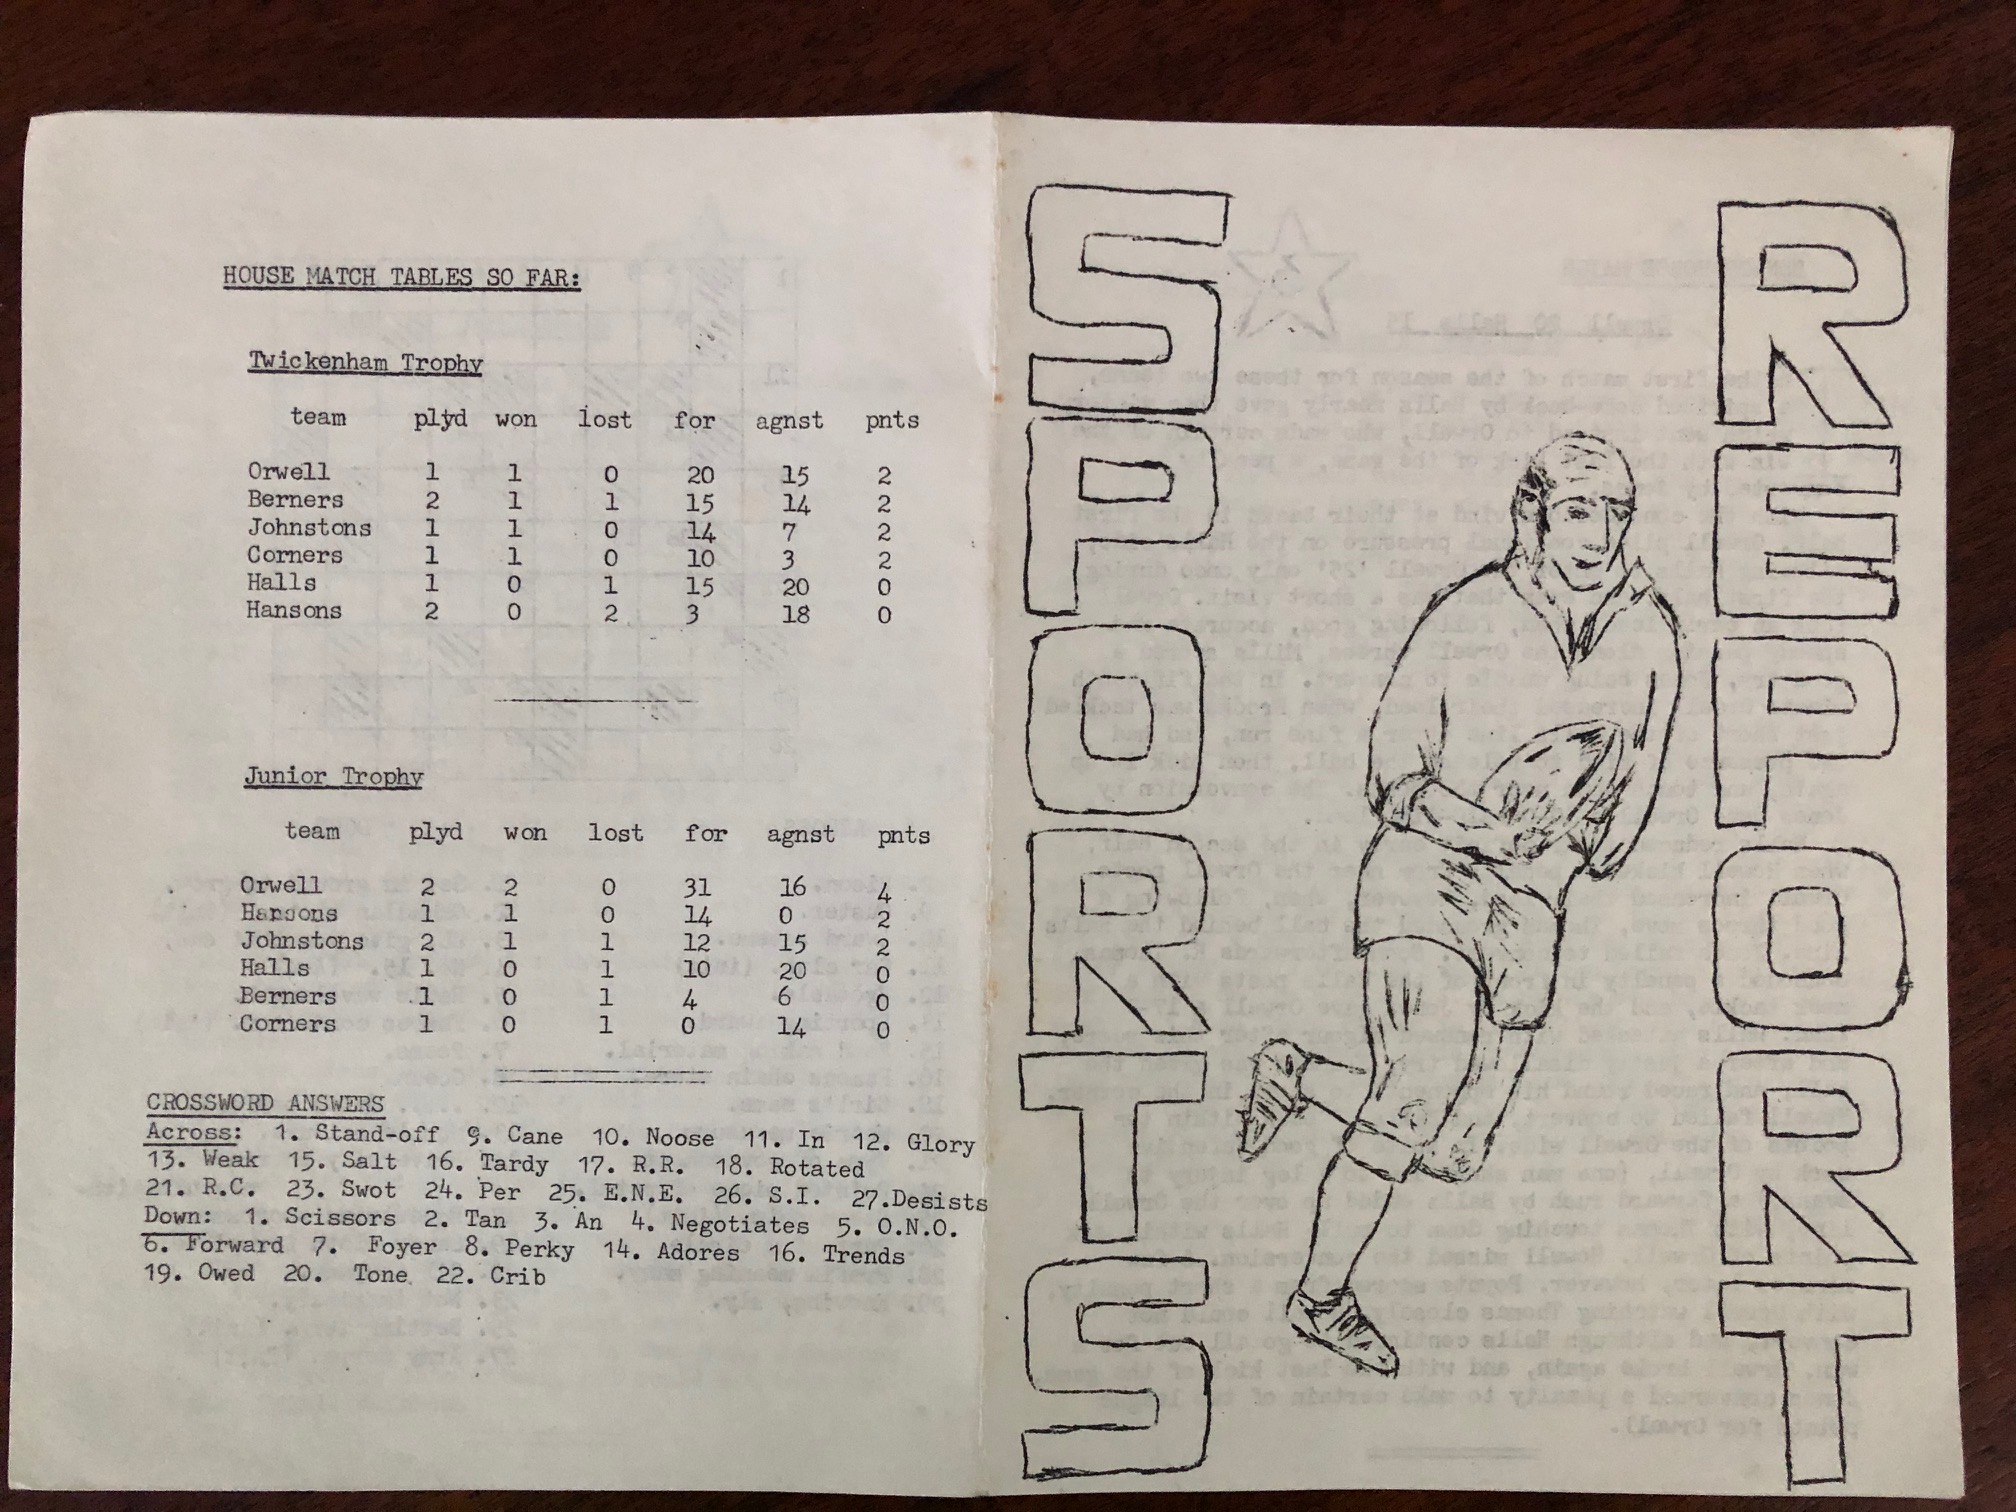 HOUSE MATCH TABLES SO FAR:
Twickenham Trophy
team plyd won lost for agnst pnts
Orwell 1 1 0 20 15 2
Berners 2 1 1 15 14 2
Johnstons 1 1 0 14 7 2
Corners 1 1 0 10 3 2
Halls 1 0 1 15 20 0
Hansons 2 0 2 3 18 0
Junior Trophy
team plyd won lost for agnst pnts
Orwell 2 2 0 31 16 4
Hansons 1 1 0 14 0 2
Johnstons 2 1 1 12 15 2
Halls 1 0 1 10 20 0
Berners 1 0 1 4 6 0
Corners 1 0 1 0 14 0
CROSSWORD ANSWERS
Across: 1. Stand-off 9. Cane 10. Noose 11. In 12. Glory
13. Weak 15. Salt 16. Tardy 17. R.R. 18. Rotated
21. R.C. 23. Swot 24. Per 25. E.N.E. 26. S.I. 27.Desists
Down: 1. Scissors 2. Tan 3. An 4. Negotiates 5. O.N.O.
6. Forward 7. Foyer 8. Perky 14. Adores 16. Trends
19. Owed 20. Tone 22. Crib
SPORTS
REPORT